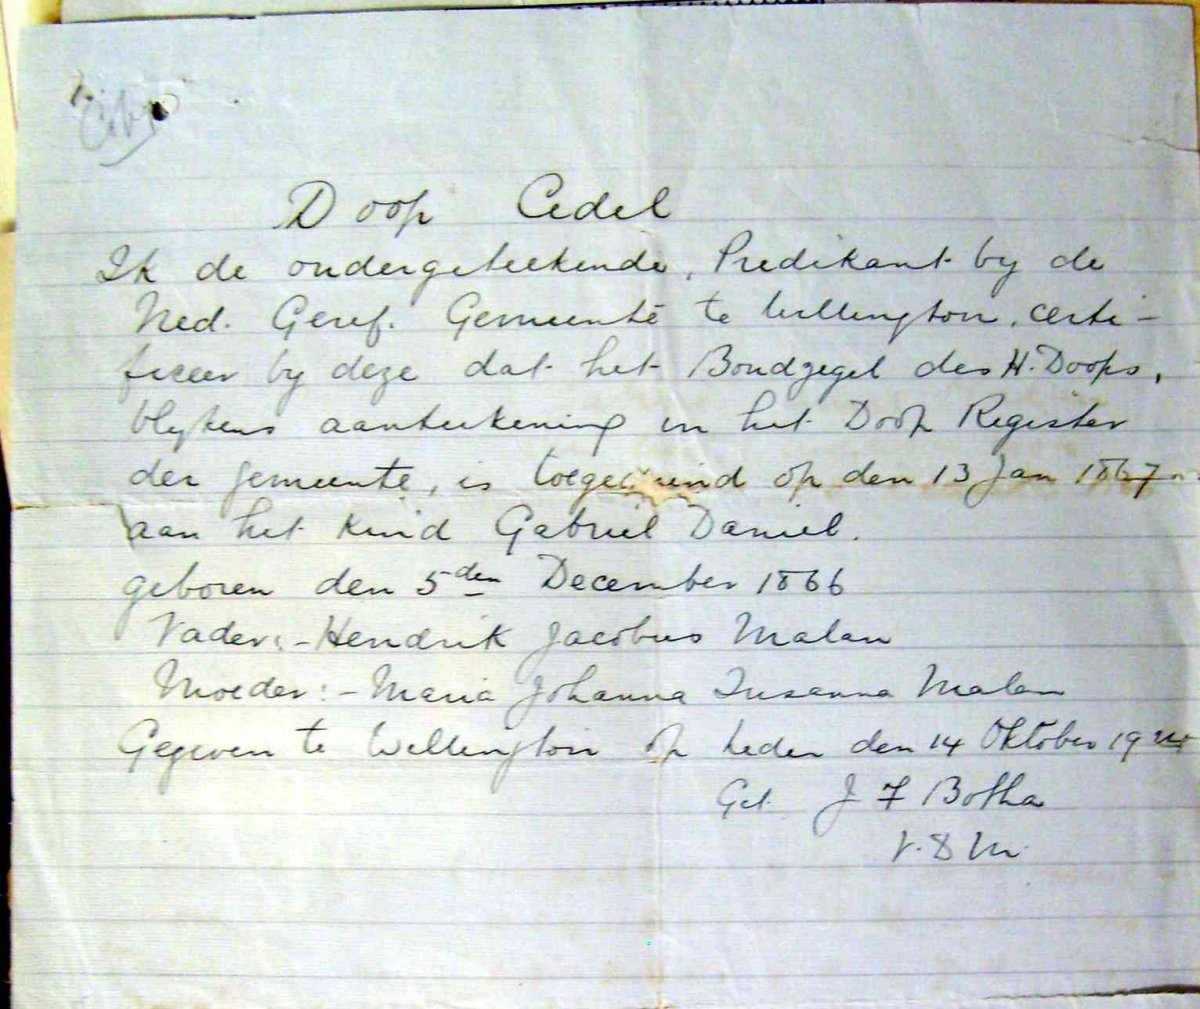 Doop Cedel
Ik de ondergeteekende, Predikant by de
Ned. Geref. Gemeente te Wellington, certi-
ficeer by deze dat het Bondzegel des H. Doops,
blykens aanteekening in het Doop Register
der gemeente, is toegediend op den 13 Jan 1867
aan het kind Gabriel Daniel.
geboren den 5den December 1866
Vader:- Hendrik Jacobus Malan
Moeder:- Maria Johanna Susanna Malan
Gegeven te Wellington op heden den 14 Oktober
Get. J F Botha
V.D.M.